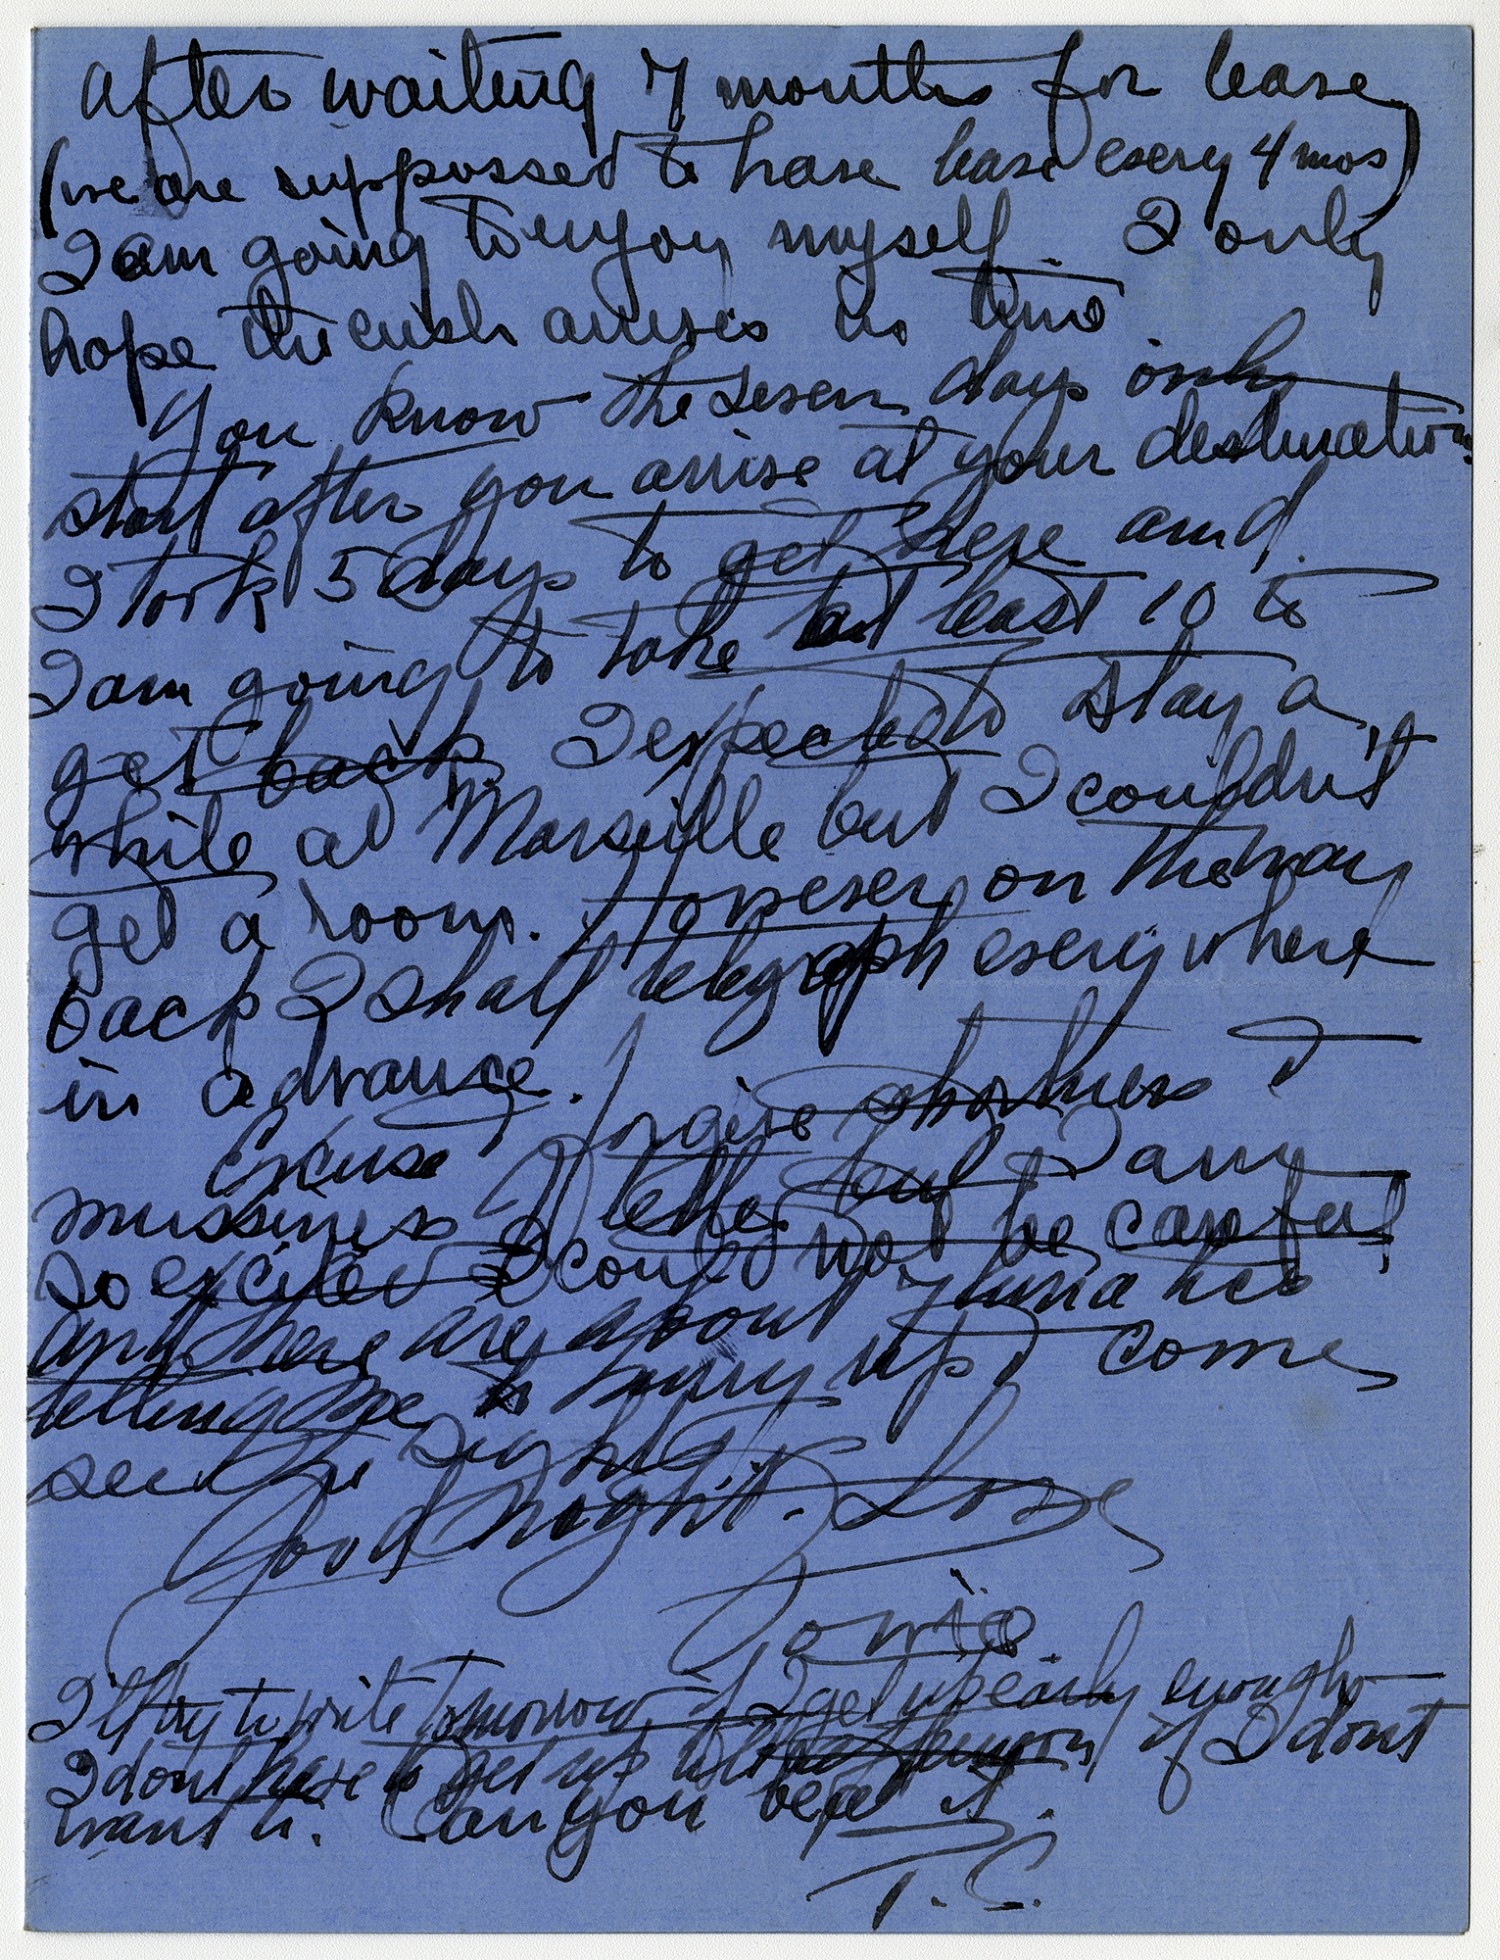 After waiting 7 months for leave
(we are suppossed to have leave every 4 mos)
I am going to enjoy myself. I only
hope the cush arrives in time
You know the seven days only
start after you arrive at your destination.
I took 5 days to get here and
I am going to take at least 10 to
get back. I expected to stay a
while at Marseille but I couldn't
get a room. However on the way
back I shall telegraph everywhere
in advance.
Excuse forgive shortness &
mussiness of letter but I am
so excited I could not be careful
and there are about
telling me to hurry up & come
see the sights
Good night. Love
Tonio
I'll try to write tomorrow if I get up early enough
I dont have to get up till afternoon if I dont
want to. Can you beat it.
T. C.